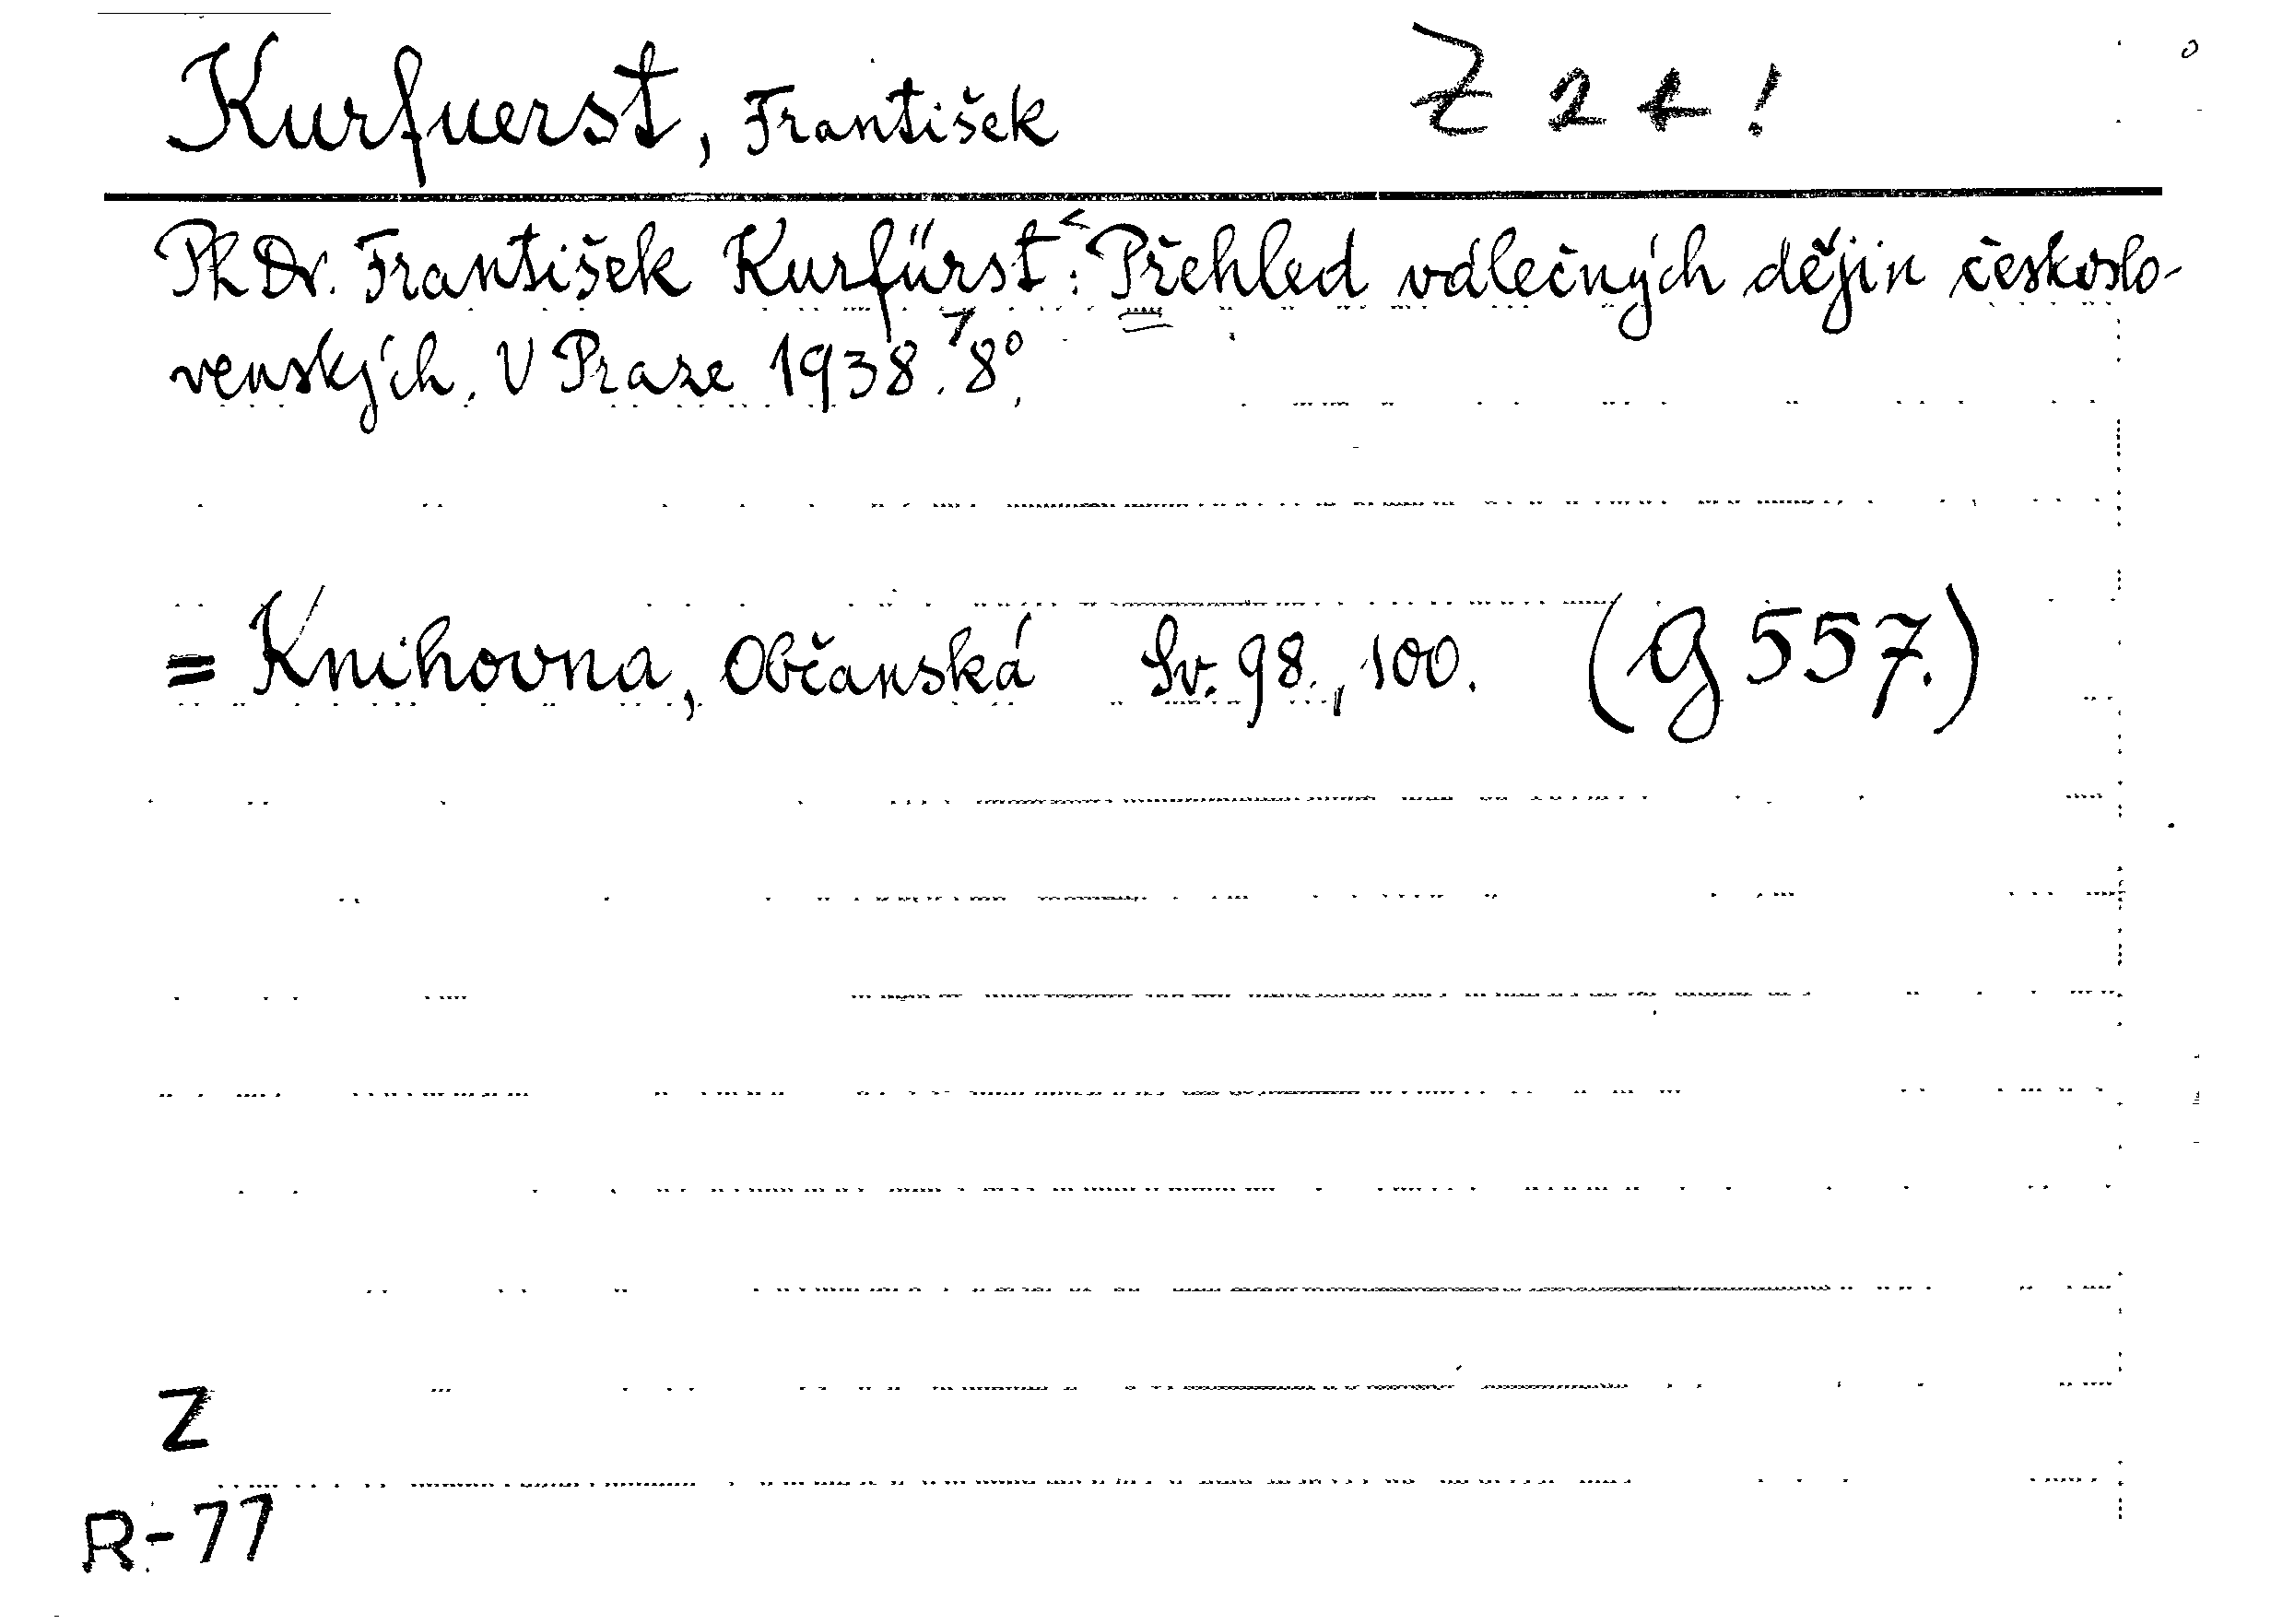 Kurfuerst, František Z 24!
PhDr. František Kurfürst: Přehled válečných dějin českoslo-
venských. V Praze 1938. 8°.
= Knihovna, Občanská Sv. 98., 100. (G 557.)
Z
R-77